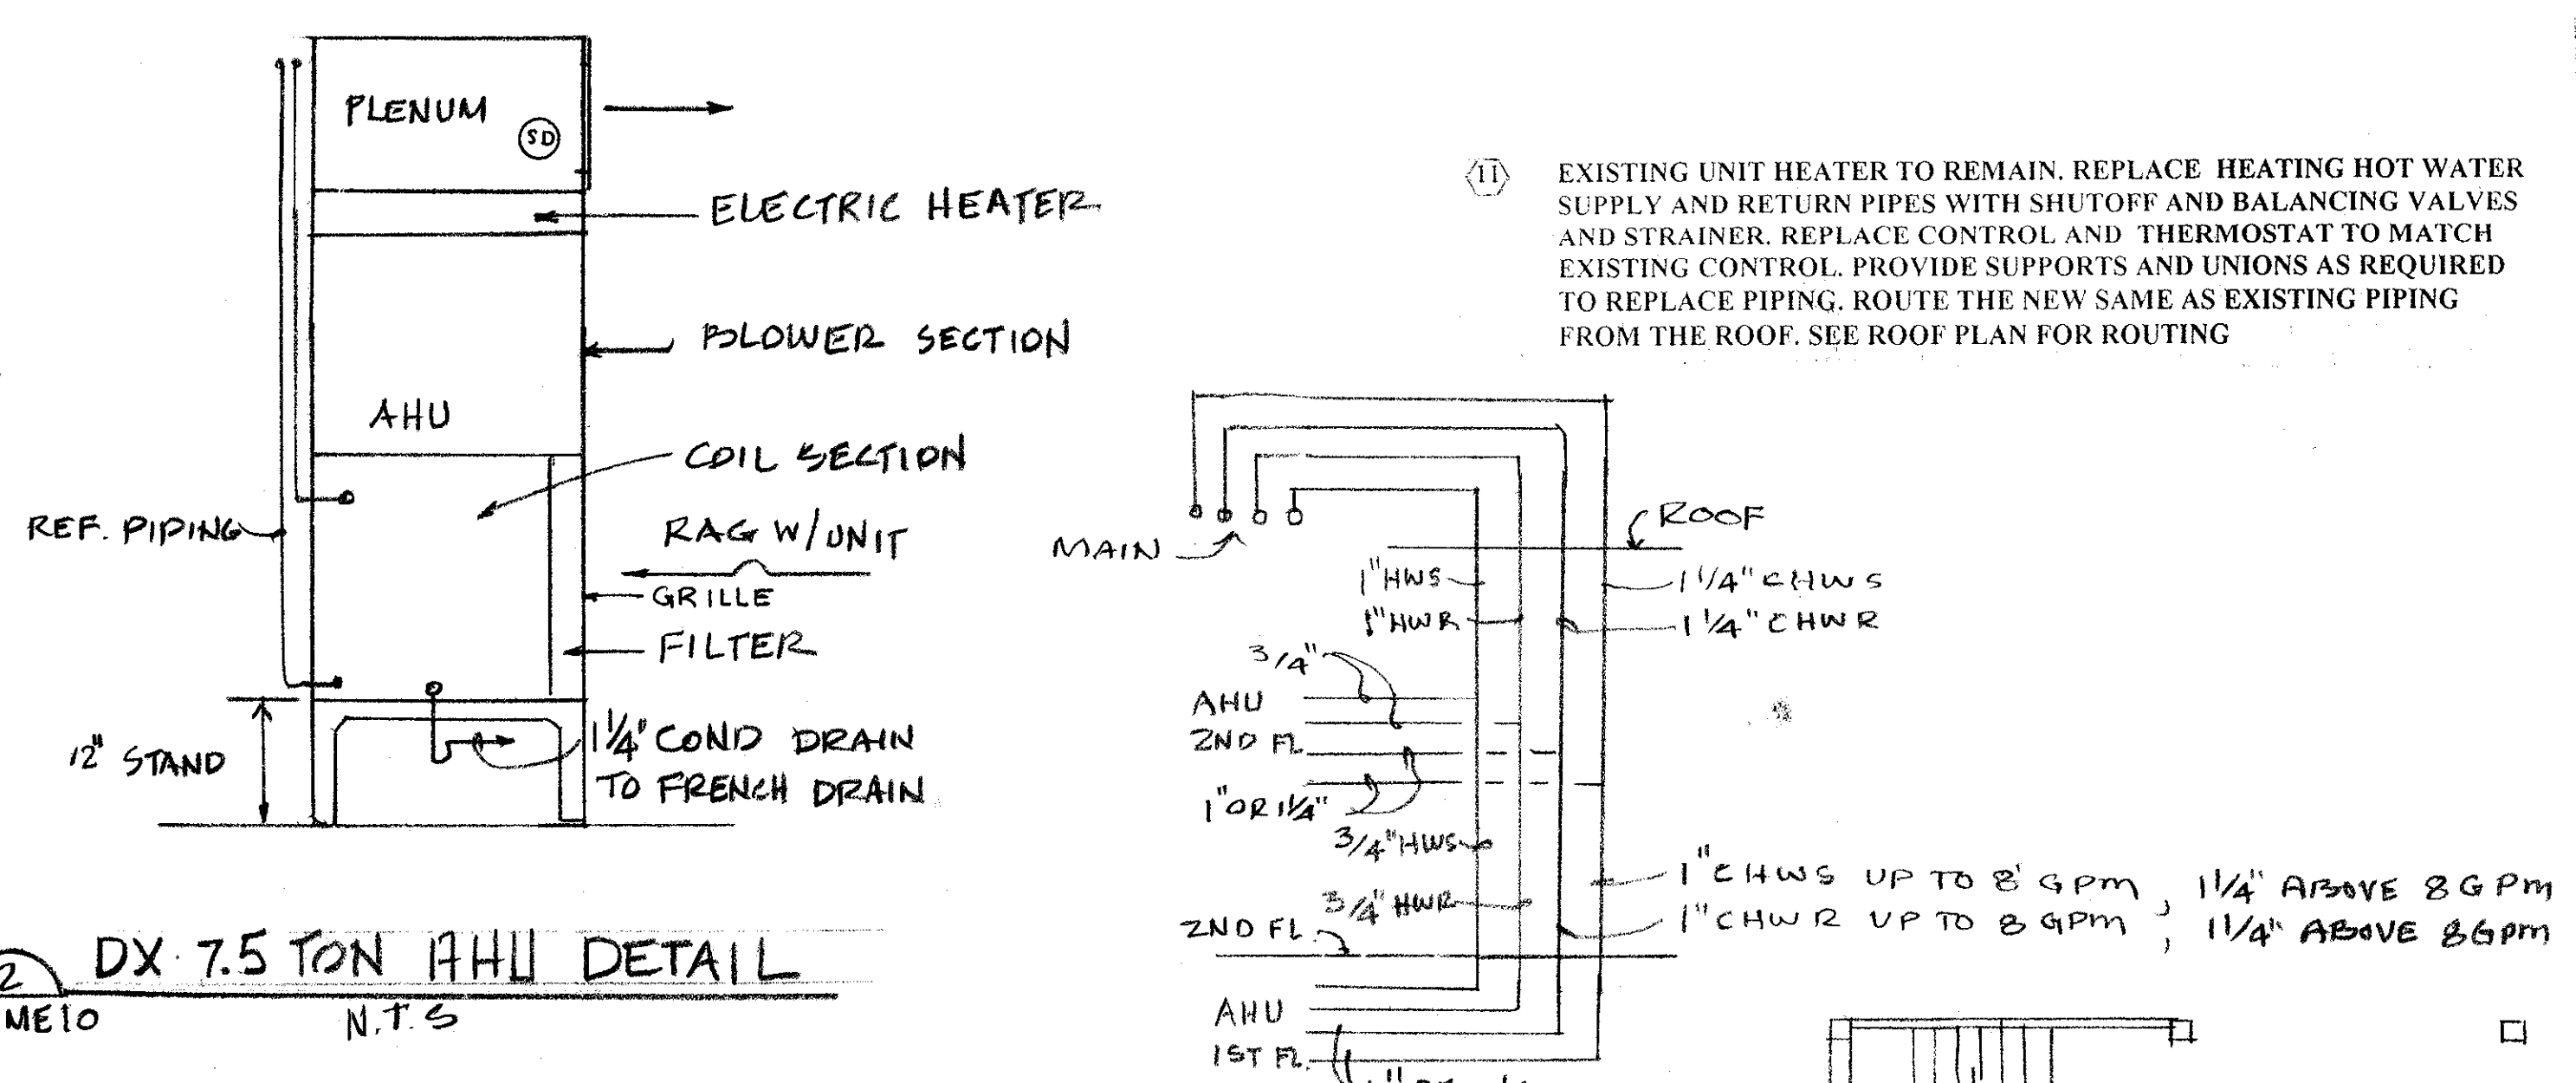 PLENUM
SD
ELECTRIC HEATER
BLOWER SECTION
AHU
COIL SECTION
REF. PIPING
RAG W/UNIT
GRILLE
FILTER
12" STAND
1 1/4" COND DRAIN
TO FRENCH DRAIN
2
DX 7.5 TON AHU DETAIL
ME10
N.T.S
11
EXISTING UNIT HEATER TO REMAIN. REPLACE HEATING HOT WATER
SUPPLY AND RETURN PIPES WITH SHUTOFF AND BALANCING VALVES
AND STRAINER. REPLACE CONTROL AND THERMOSTAT TO MATCH
EXISTING CONTROL. PROVIDE SUPPORTS AND UNIONS AS REQUIRED
TO REPLACE PIPING. ROUTE THE NEW SAME AS EXISTING PIPING
FROM THE ROOF. SEE ROOF PLAN FOR ROUTING
MAIN
ROOF
1" HWS
1 1/4" CHWS
1" HWR
1 1/4" CHWR
3/4"
AHU
2ND FL.
1" OR 1 1/4"
3/4" HWS
1" CHWS UP TO 8 GPM, 1 1/4" ABOVE 8 GPM
3/4" HWR
1" CHWR UP TO 8 GPM, 1 1/4" ABOVE 8 GPM
2ND FL.
AHU
1ST FL.